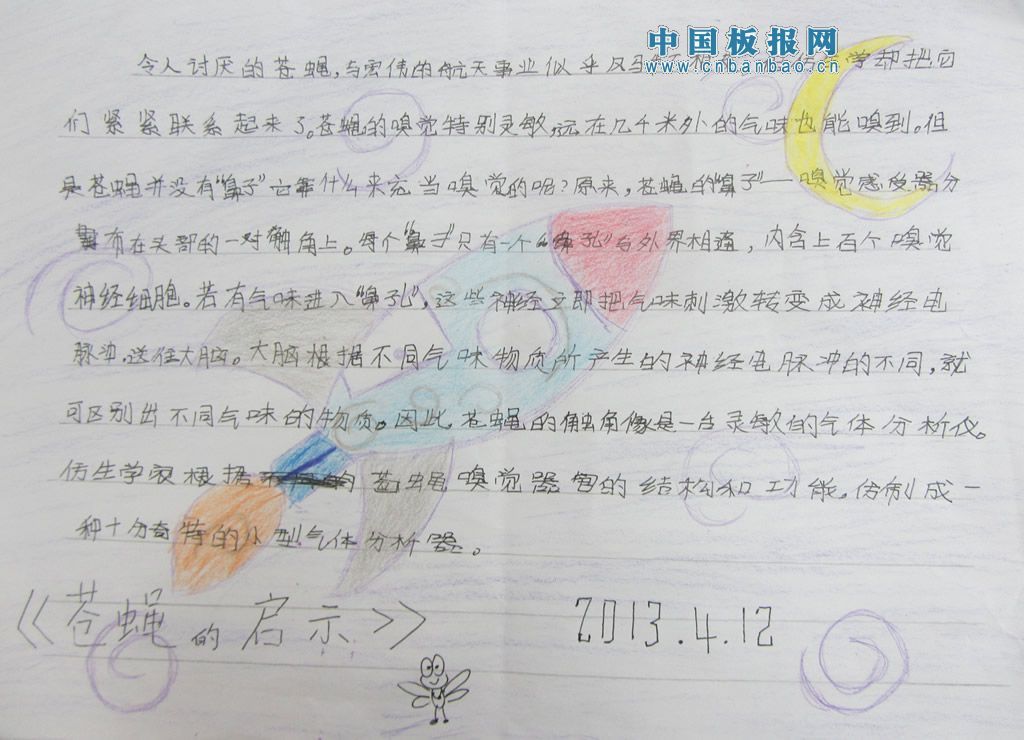 中国板报网
www.cnbanbao.cn
令人讨厌的苍蝇,与宏伟的航天事业似乎风马学却把它
们紧紧联系起来了。苍蝇的嗅觉特别灵敏,远在几千米外的气味也能嗅到。但
是苍蝇并没有"鼻子"它靠什么来充当嗅觉的呢?原来,苍蝇的"鼻子"——嗅觉感受器分
布在头部的一对触角上。每个"鼻子"只有一个"鼻孔"与外界相通,内含上百个嗅觉
神经细胞。若有气味进入"鼻孔",这些神经立即把气味刺激转变成神经电
脉冲,送往大脑。大脑根据不同气味物质所产生的神经电脉冲的不同,就
可区别出不同气味的物质。因此,苍蝇的触角像是一台灵敏的气体分析仪。
仿生学家根据苍蝇嗅觉器官的结构和功能。仿制成一
种十分奇特的小型气体分析器。
《苍蝇的启示》 2013.4.12